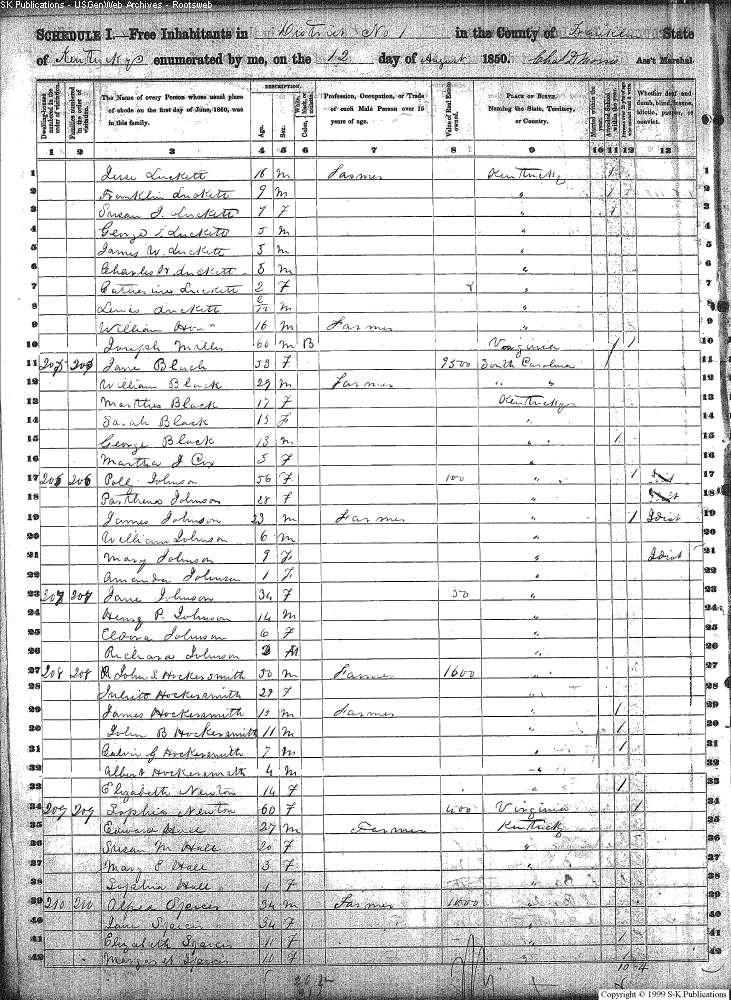 SK Publications - USGenWeb Archives - Rootsweb
SCHEDULE I.—Free Inhabitants in District No 1 in the County of Franklin State
of Kentucky enumerated by me, on the 12 day of August 1850. Chas D Morris Ass't Marshal.
Dwelling-houses numbered in the order of visitation.
Families numbered in the order of visitation.
The Name of every Person whose usual place of abode on the first day of June, 1850, was in this family.
DESCRIPTION.
Age.
Sex.
Color, White, black, or mulatto.
Profession, Occupation, or Trade of each Male Person over 15 years of age.
Value of Real Estate owned.
PLACE OF BIRTH. Naming the State, Territory, or Country.
Whether deaf and dumb, blind, insane, idiotic, pauper, or convict.
1 2 3 4 5 6 7 8 9 10 11 12 13
1 Jesse Luckett 16 M Farmer Kentucky 1 1
2 Franklin Luckett 9 M " 1 2
3 Susan J. Luckett 7 F " 1 3
4 George Luckett 5 M " 4
5 James W. Luckett 5 M " 5
6 Charles Luckett 5 M " 6
7 Catherine Luckett 2 F " 7
8 Lewis Luckett M " 8
9 William 16 M Farmer " 9
10 Joseph Miller 60 M B Virginia 1 1 10
11 205 205 Jane Black 53 F 9500 South Carolina 11
12 William Black 29 M Farmer " " 12
13 Black 17 F Kentucky 13
14 Sarah Black 15 F " 14
15 George Black 13 M " 1 15
16 Martha J Cox 5 F " 16
17 206 206 Poll Johnson 56 F 100 " 1 17
18 Johnson 28 F " 18
19 James Johnson 23 M Farmer " 1 Idiot 19
20 William Johnson 6 M " 20
21 Mary Johnson 9 F " Idiot 21
22 Amanda Johnson 1 F " 22
23 207 207 Jane Johnson 34 F 50 " 23
24 Henry P. Johnson 14 M " 24
25 Johnson 6 F " 25
26 Richard Johnson M " 26
27 208 208 John S. Hockersmith 50 M Farmer 1600 " 27
28 Hockersmith 29 F " 28
29 James Hockersmith 15 M Farmer " 1 29
30 John B Hockersmith 11 M " 1 30
31 Calvin G Hockersmith 7 M " 1 31
32 Albert Hockersmith 4 M " 32
33 Elizabeth Newton 14 F " 1 33
34 209 209 Sophia Newton 60 F 400 Virginia 1 34
35 Edward Hall 27 M Farmer Kentucky 35
36 Susan M Hall 20 F " 36
37 Mary E Hall 3 F " 37
38 Sophia Hall 1 F " 38
39 210 210 Spencer 34 M Farmer " 39
40 Jane Spencer 34 F " 40
41 Elizabeth Spencer 11 F " 1 41
42 Margaret Spencer 10 F " 1 42
10 4
Copyright © 1999 S-K Publications